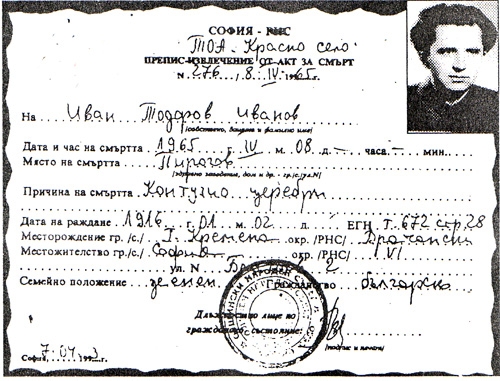 СОФИЯ - РНС
ТОА - Красно село
ПРЕПИС-ИЗВЛЕЧЕНИЕ ОТ АКТ ЗА СМЪРТ
N. 276, 8. IV. 1965 г.
На Иван Тодоров Иванов
/собствено, бащино и фамилно име/
Дата и час на смъртта 1965 г. IV м. 08 д. – часа – мин.
Място на смъртта Пирогов
/здравно заведение, дом и др. гр./с./ул.N/
Причина на смъртта Контузио церебри
Дата на раждане 1916 г. 01 м. 02 д. ЕГН т. 672 стр. 28
Месторождение гр./с./ Кремена окр. /РНС/ Врачански
Местожителство гр./с./ София окр. /РНС/ VI
ул. N 2
Семейно положение женен Гражданство българско
Длъжностно лице по
гражданско състояние:
/подпис и печат/
София, 7.04.199